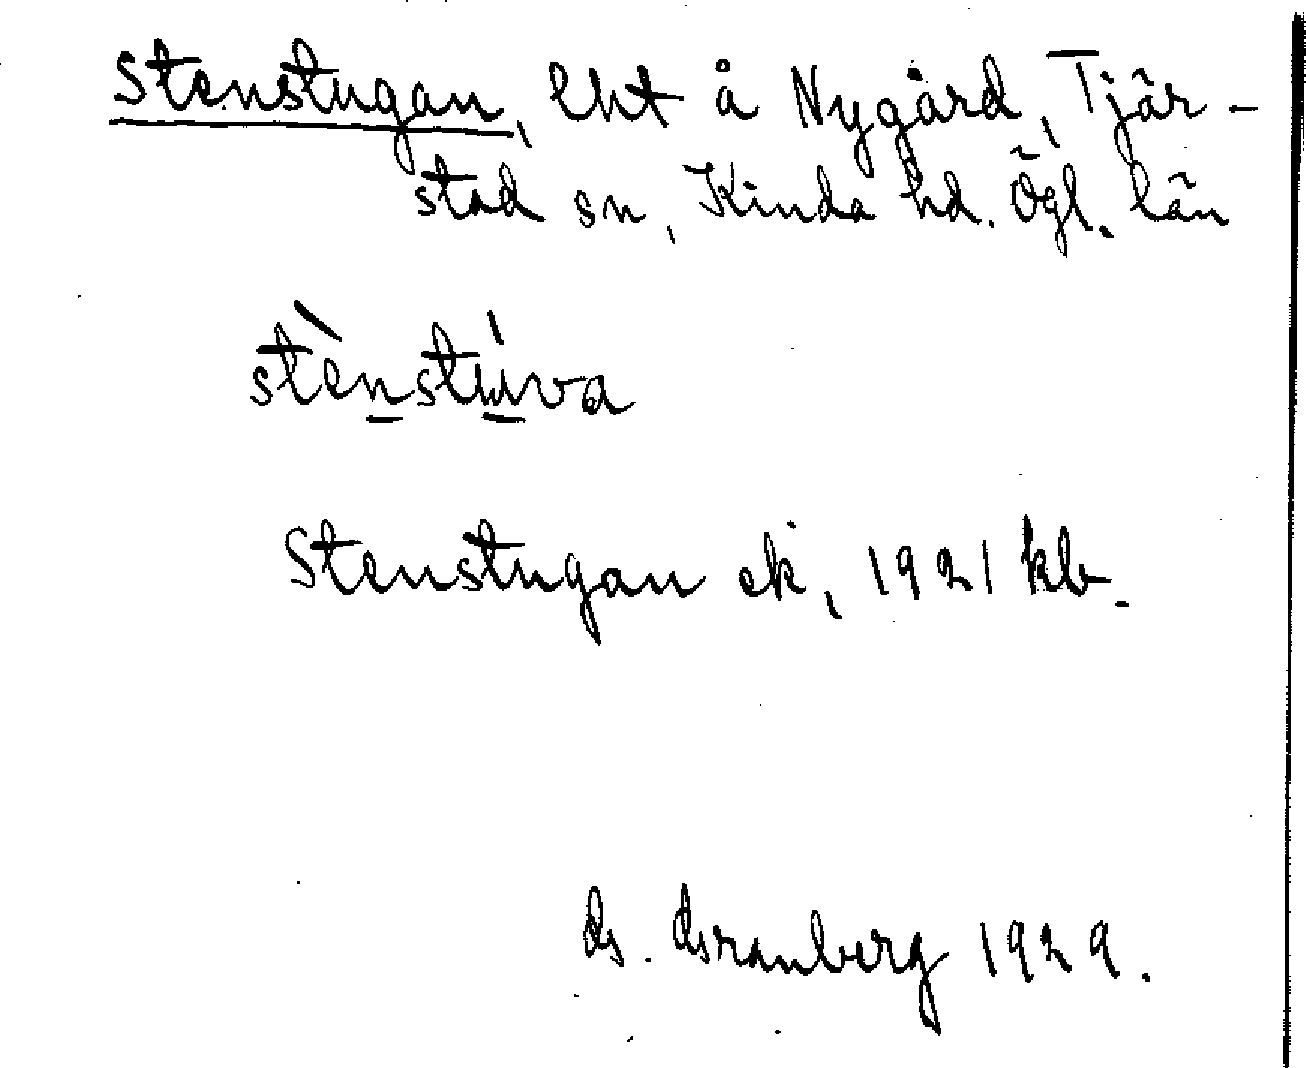 Stenstugan, lht å Nygård, Tjär-
stad sn, Kinda hd. Ögl. län
stènstúva
Stenstugan ek, 1921 kb.
G. Granberg 1929.